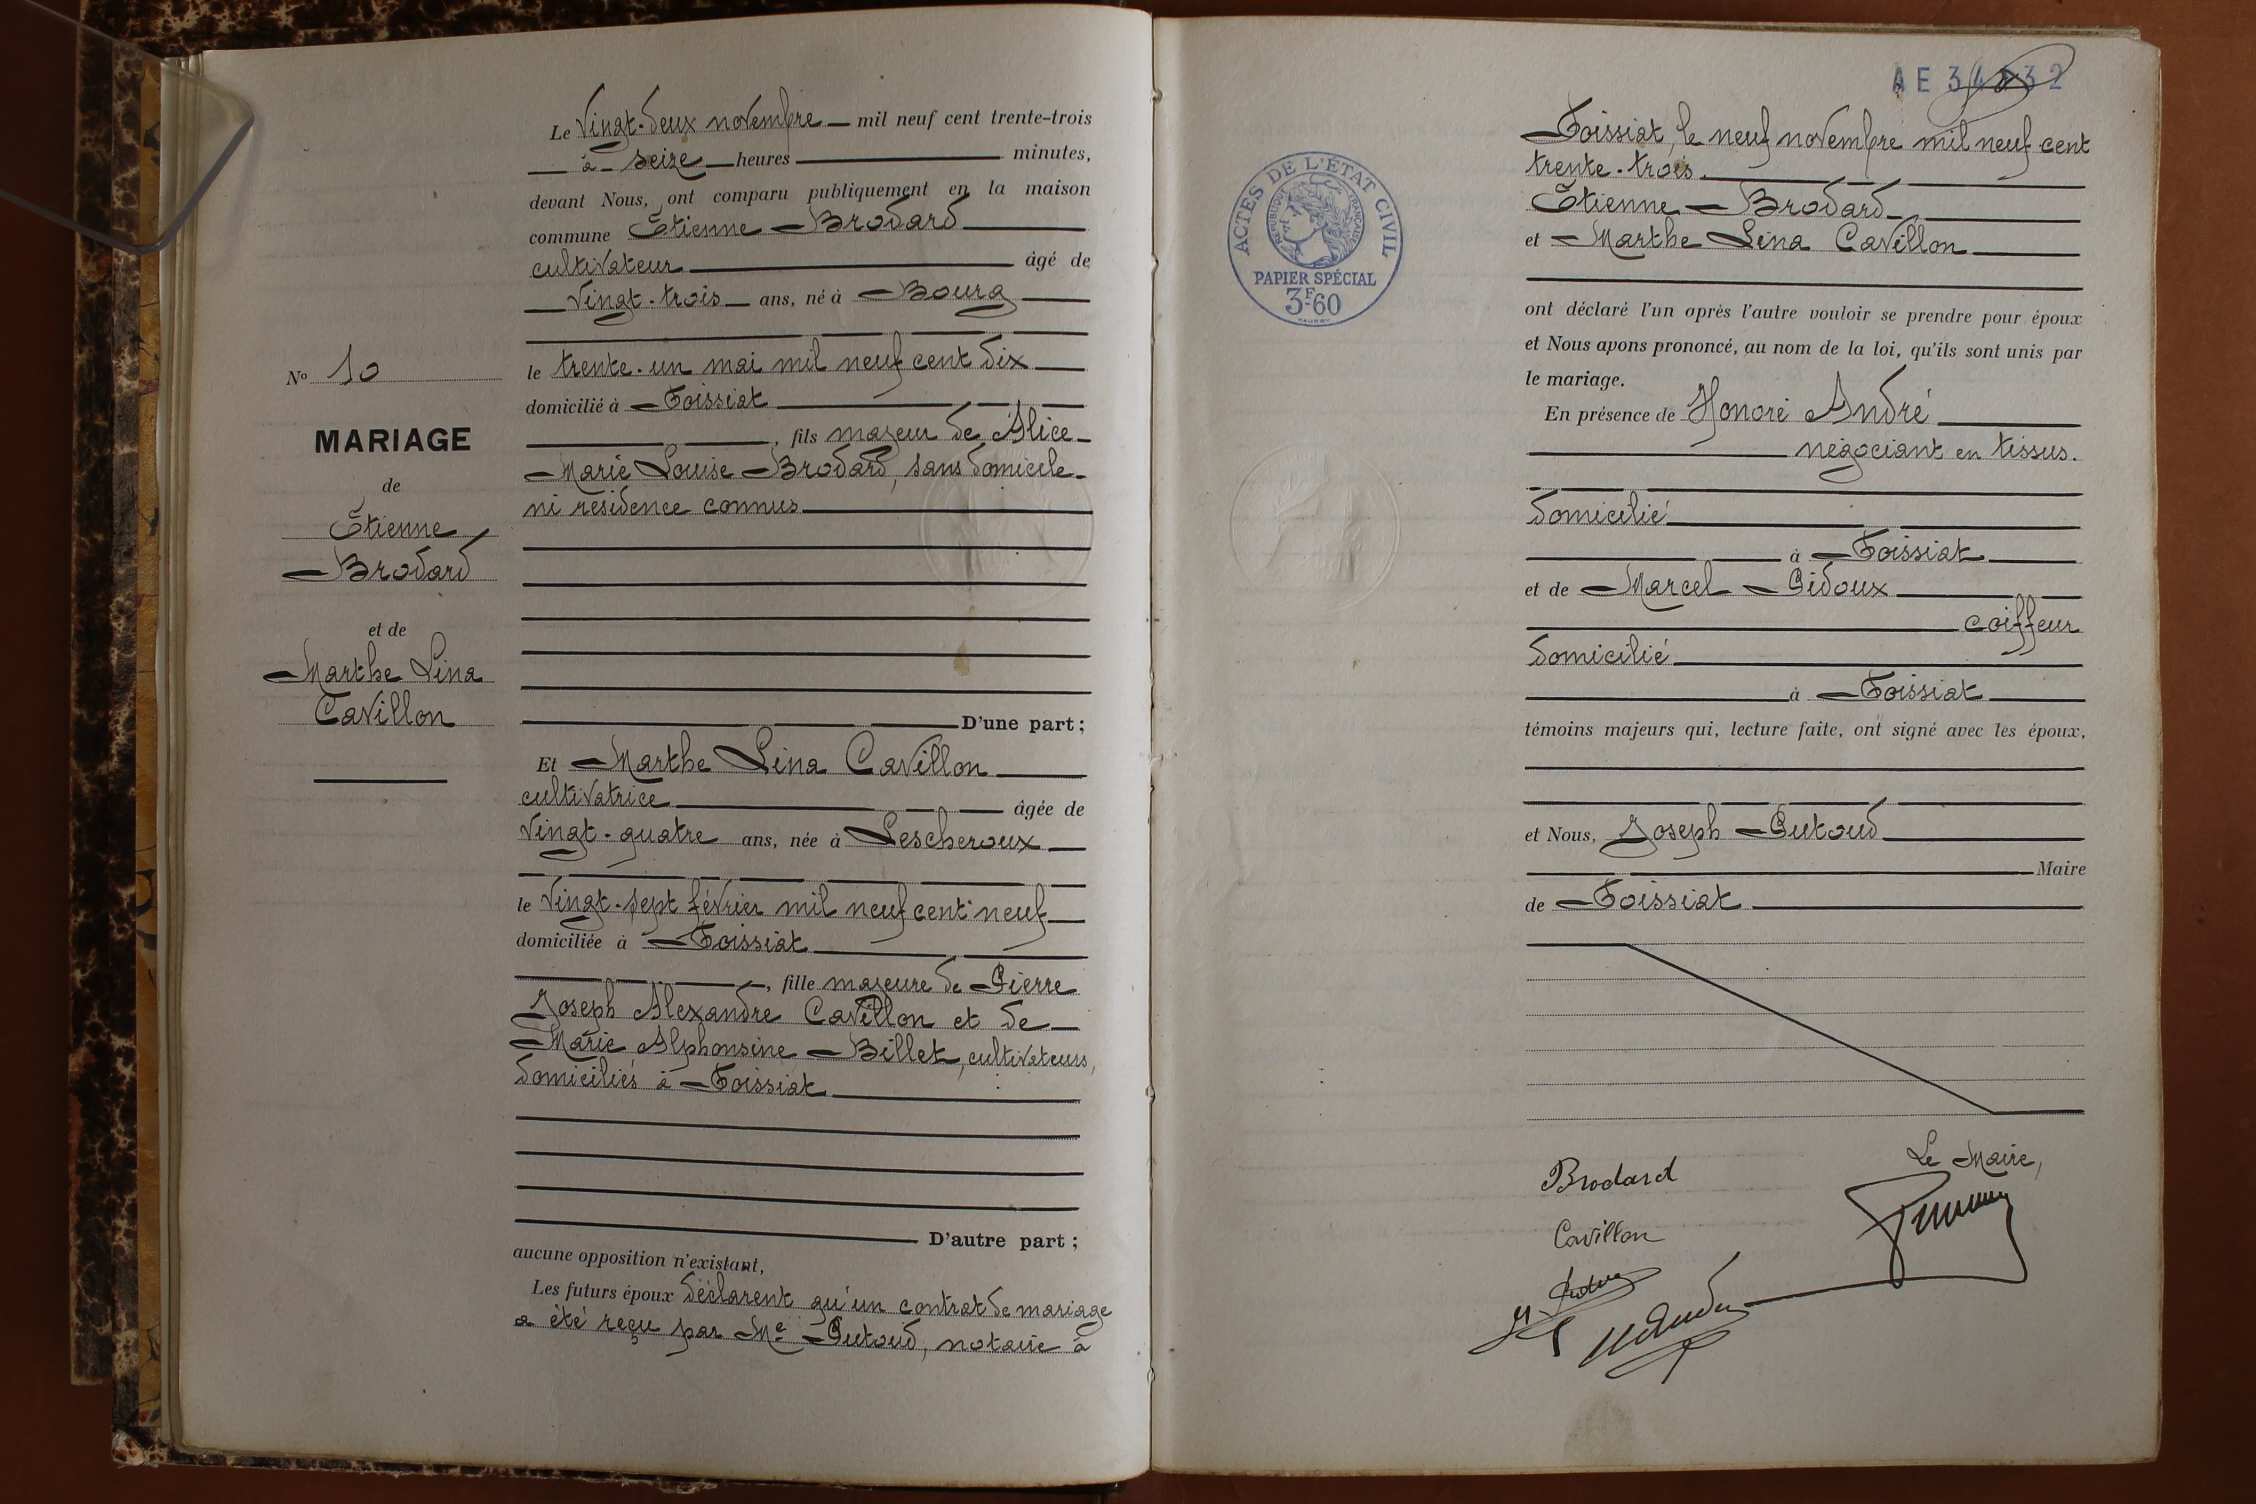 Nº 10
MARIAGE
de
Étienne
Brodard
et de
Marthe Lina
Cavillon
Le Vingt-deux novembre mil neuf cent trente-trois
à seize heures minutes,
devant Nous, ont comparu publiquement en la maison
commune Étienne Brodard
cultivateur âgé de
Vingt-trois ans, né à Bourg
le trente-un mai mil neuf cent dix
domicilié à Foissiat
, fils majeur de Alice
Marie Louise Brodard, sans domicile
ni résidence connus
D'une part ;
Et Marthe Lina Cavillon
cultivatrice âgée de
Vingt-quatre ans, née à Lescheroux
le Vingt-sept février mil neuf cent neuf
domiciliée à Foissiat
, fille majeure de Pierre
Joseph Alexandre Cavillon et de
Marie Alphonsine Billet, cultivateurs,
domiciliés à Foissiat
D'autre part ;
aucune opposition n'existant,
Les futurs époux déclarent qu'un contrat de mariage
a été reçu par Me Putoud, notaire à
ACTES DE L'ÉTAT CIVIL
RÉPUBLIQUE FRANÇAISE
PAPIER SPÉCIAL
3F.60
Foissiat, le neuf novembre mil neuf cent
trente-trois
Étienne Brodard
et Marthe Lina Cavillon
ont déclaré l'un après l'autre vouloir se prendre pour époux
et Nous avons prononcé, au nom de la loi, qu'ils sont unis par
le mariage.
En présence de Honoré André
négociant en tissus.
domicilié
à Foissiat
et de Marcel Pidoux
coiffeur
domicilié
à Foissiat
témoins majeurs qui, lecture faite, ont signé avec les époux,
et Nous, Joseph Putoud
Maire
de Foissiat
Le Maire,
Brodard
Cavillon